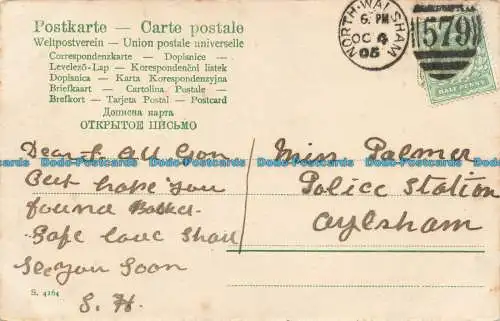 Postkarte – Carte postale
Weltpostverein – Union postale universelle
Correspondenzkarte – Dopisnice –
Levelező-Lap – Korespondenční lístek
Dopisnica – Karta Korespondenzyjna
Briefkaart – Cartolina Postale –
Brefkort – Tarjeta Postal – Postcard
Дописна карта
ОТКРЫТОЕ ПИСЬМО
NORTH-WALSHAM
6. PM
OC 4
05
579
HALF PENNY
Dear All
but hope you
found
Safe love Shall
See you Soon
S. H.
Miss Palmer
Police Station
Aylsham
S. 4164
Dodo-Postcards Dodo-Postcards Dodo-Postcards Dodo-Postcards Dodo-Postcards